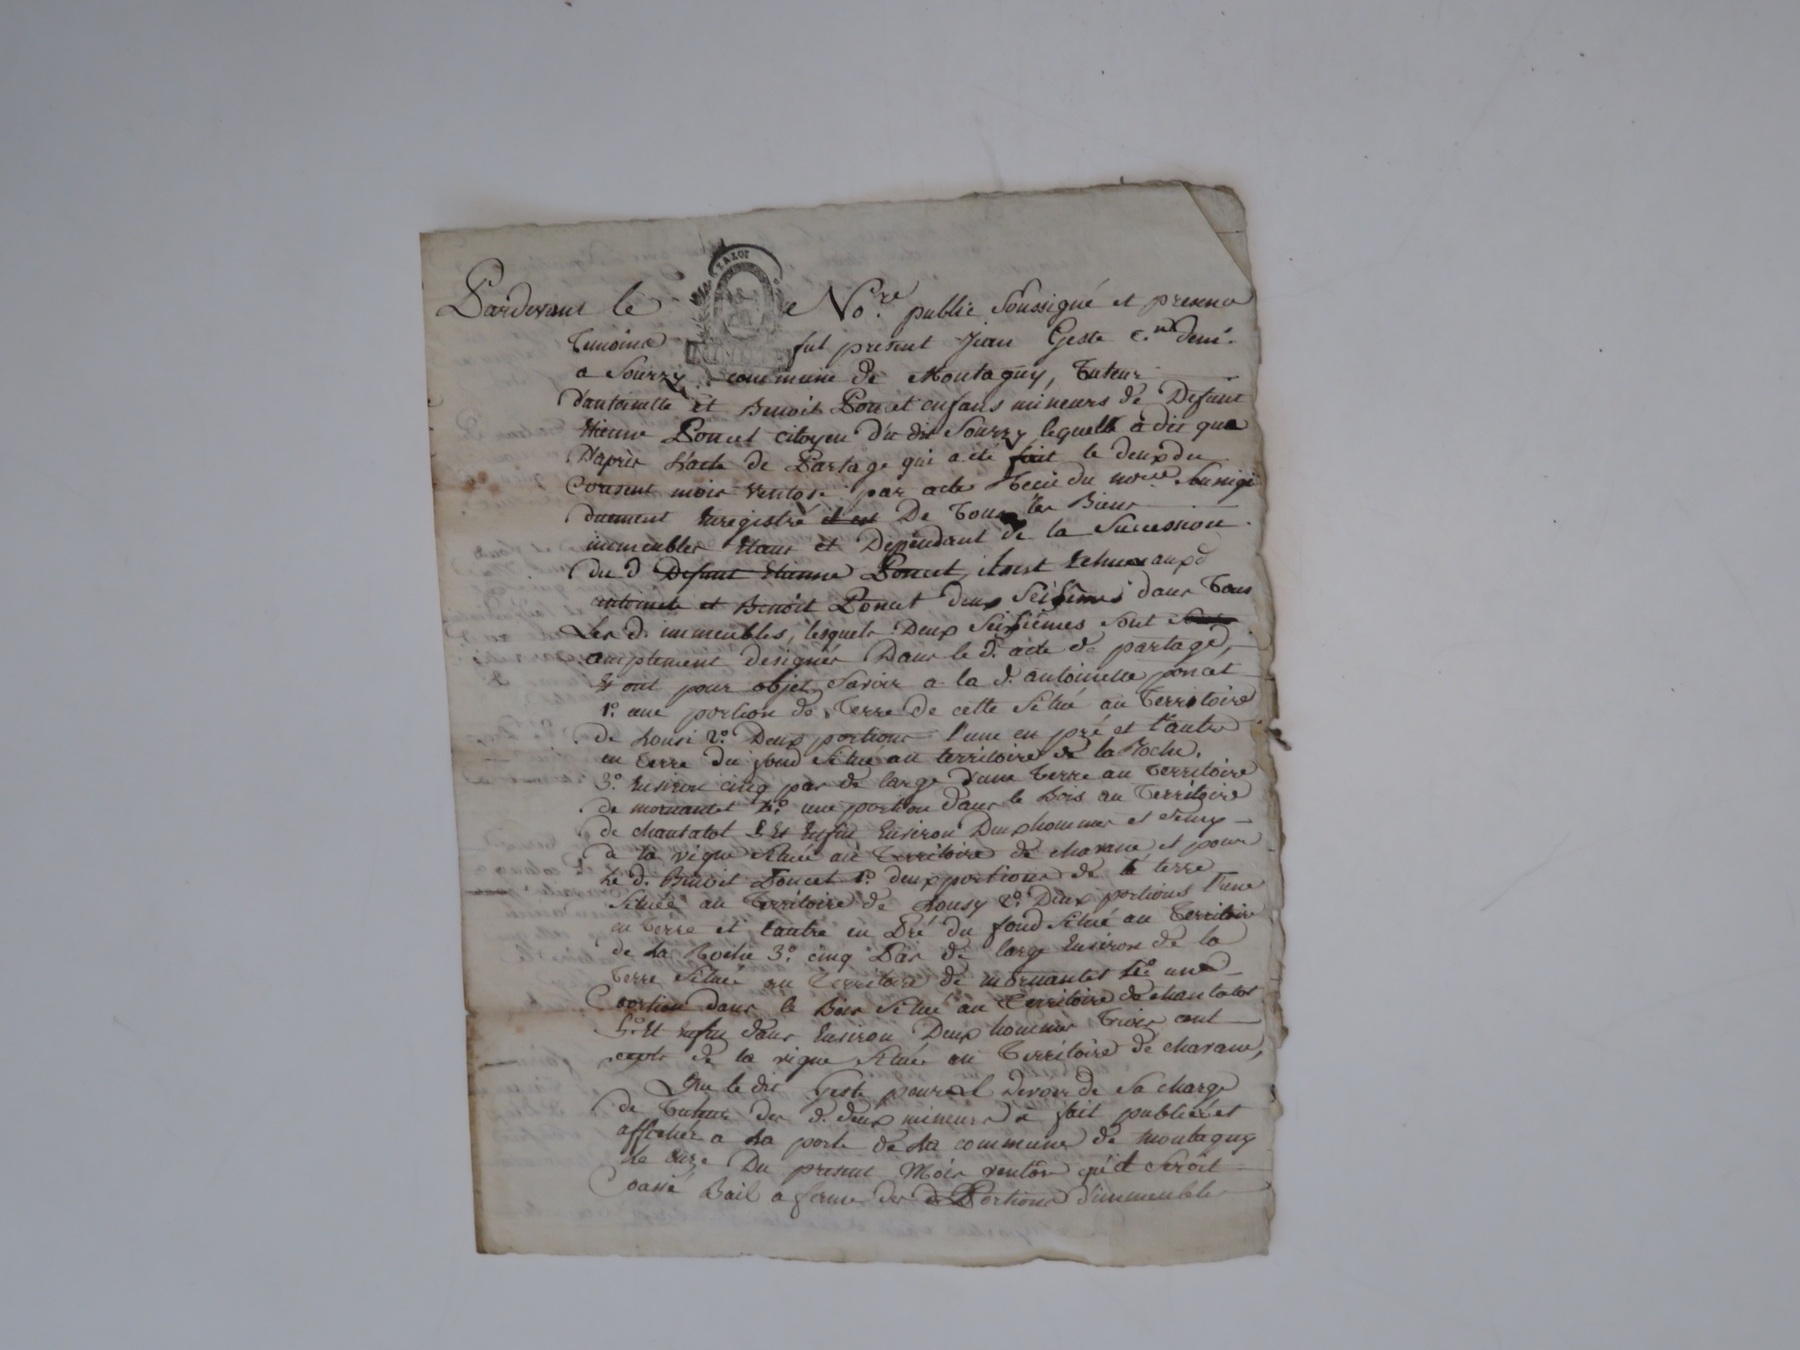 Pardevant le No.re public Soussigné et presence
Temoins fut present Jean Geste c.n dem.t
a Sourzy commune de Montagny, Tuteur
d'antoinette et Benoit Poncet enfans mineurs de Defunt
Etienne Poncet citoyen du dit Sourzy lequelle a dit que
D'aprés L'acte de Partage qui a été fait le deux du
Courent mois ventose par acte Recu du no.re Sousigé
duement Enregistré et est De Tous les Biens
immeubles Etans et Dependant de la Succession
du d Defunt Etienne Poncet, il est Echus aux d
antoinete et Benoit Poncet deux Seiziemes dans Tous
Les d. immeubles, lesquels Deux Seiziemes sont
amplement designés Dans le d. acte de partage,
Et ont pour objet Savoir a la d. antoinette poncet
1.o une portion de Terre de cette Situé au Territoire
de Lonsi 2.o Deux portions l'une en pré et l'autre
en Terre du fond Situé au territoire de la Roche,
3.o Environ cinq pas de large d'une Terre au Territoire
de mornantet 4.o une portion dans le Bois au Territoire
de chantatot 5 Et Enfin Environ Deux hommes et demy
de la vigne Située au Territoire de charane et pour
Le d. Benoit Poncet 1.o deux portions de terre
Située au Territoire de Lonsy 2.o Deux portions l'une
en Terre et l'autre en Pré du fond Situé au Territoire
de La Roche 3.o cinq Pas de large Environ de la
Terre Située au Territoire de mornantet 4.o une
portion dans le Bois Situé au Territoire de chantatot
5.o Et Enfin dans Environ Deux hommes Trois cent
ceps de la vigne Située au Territoire de charane,
Que le dit Geste pour devoir de Sa charge
de Tuteur des d. deux mineurs a fait publier et
afficher a La porte de La commune de montagny
Le onze Du present Mois ventôse qu'il Seroit
passé Bail a ferme des d Portions d'immeubles